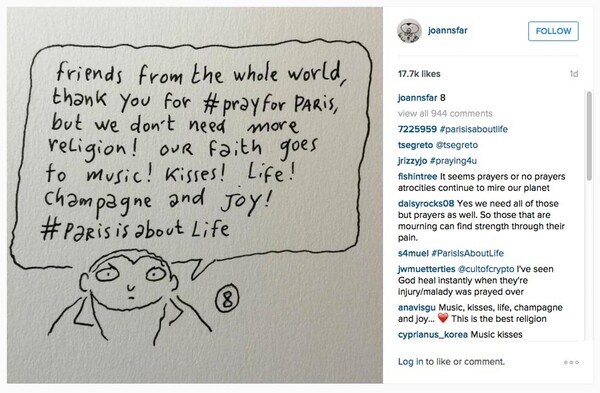 friends from the whole world,
thank you for #prayfor PARIS,
but we don't need more
religion! our faith goes
to music! Kisses! Life!
Champagne and Joy!
#Parisis about Life
8
joannsfar
FOLLOW
17.7k likes
1d
joannsfar 8
view all 944 comments
7225959 #parisisaboutlife
tsegreto @tsegreto
jrizzyjo #praying4u
fishintree It seems prayers or no prayers
atrocities continue to mire our planet
daisyrocks08 Yes we need all of those
but prayers as well. So those that are
mourning can find strength through their
pain.
s4muel #ParisIsAboutLife
jwmuetterties @cultofcrypto I've seen
God heal instantly when they're
injury/malady was prayed over
anavisgu Music, kisses, life, champagne
and joy... ❤️ This is the best religion
cyprianus_korea Music kisses
Log in to like or comment.